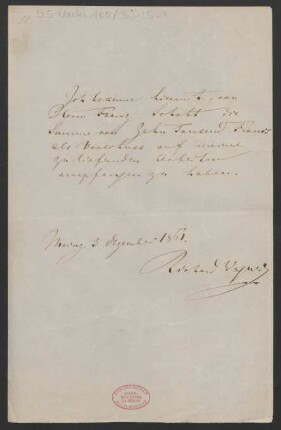 Ich bekenne hiermit, von
Herrn Franz Schott die
Summe von Zehn Tausend Francs
als Vorschuss auf meine
zu liefernden Arbeiten
empfangen zu haben.
Mainz, 3 Dezember 1861.
Richard Wagner